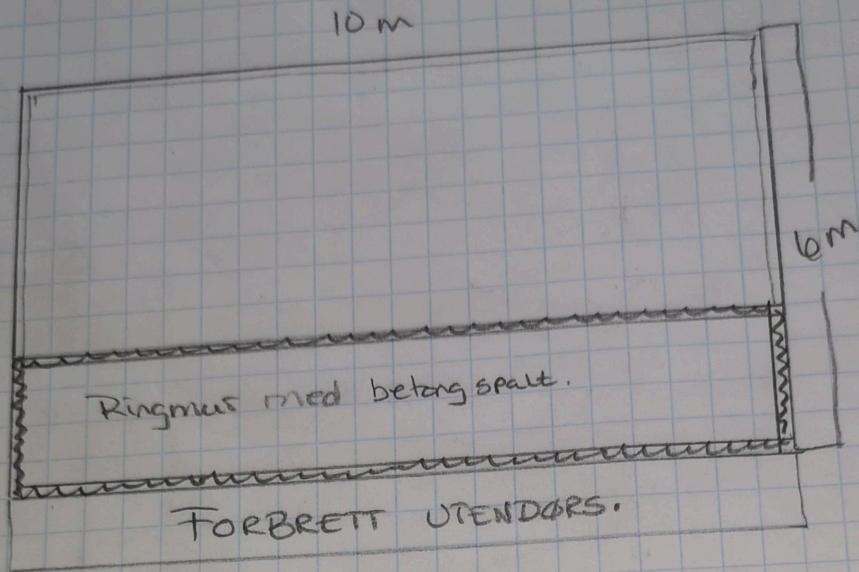 10 m
6 m
Ringmur med betong spalt.
FORBRETT UTENDØRS.